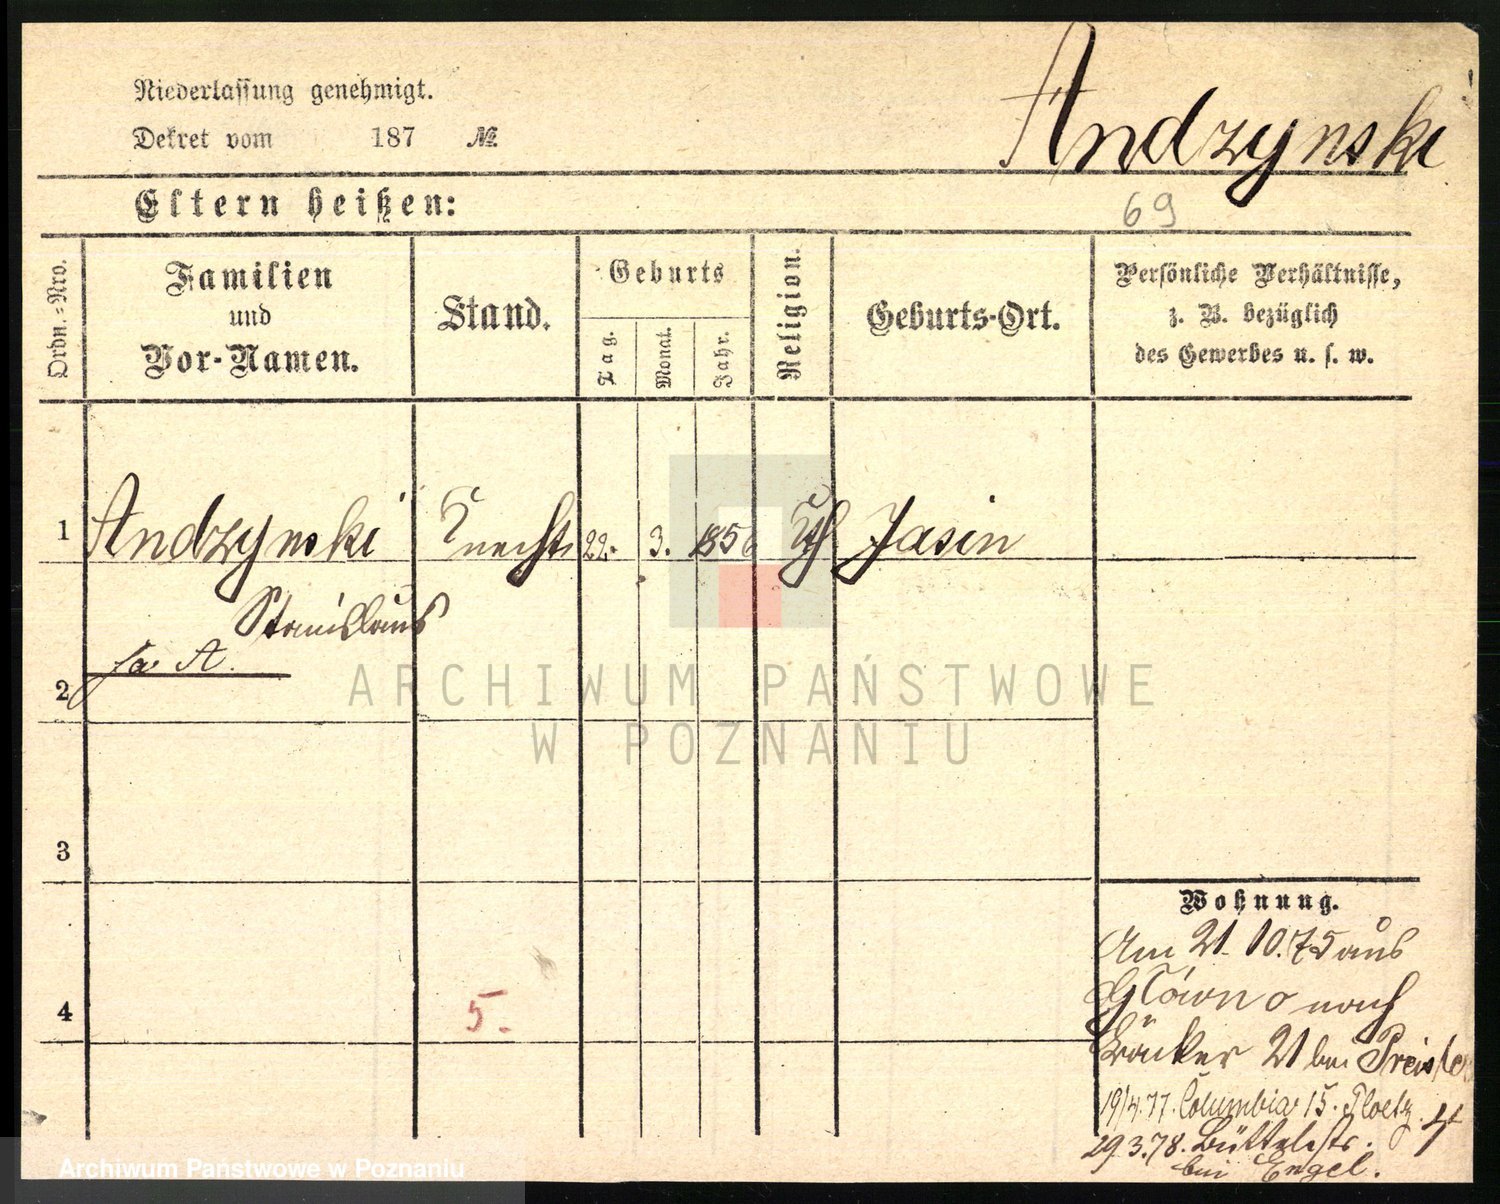 Niederlassung genehmigt.
Dekret vom 187 №
Andrzynski
Eltern heißen:
69
Ordn.-Nro.
Familien
und
Vor-Namen.
Stand.
Geburts
Tag.
Monat.
Jahr.
Religion.
Geburts-Ort.
Persönliche Verhältnisse,
z. B. bezüglich
des Gewerbes u. s. w.
1 Andrzynski Knecht 22. 3. 1856 kth Jasin
Stanislaus
2
3
4
5.
Wohnung.
Am 21. 10. 75 aus
Główno nach
Bäcker 21 bei
19/4.77. Columbia 15. Ploetz.
29.3.78. Büttelstr.
bei Engel.
ARCHIWUM PAŃSTWOWE
W POZNANIU
Archiwum Państwowe w Poznaniu